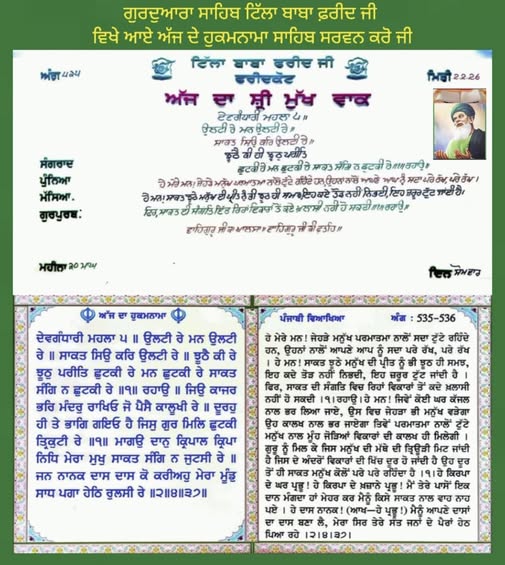 ਗੁਰਦੁਆਰਾ ਸਾਹਿਬ ਟਿੱਲਾ ਬਾਬਾ ਫ਼ਰੀਦ ਜੀ
ਵਿਖੇ ਆਏ ਅੱਜ ਦੇ ਹੁਕਮਨਾਮਾ ਸਾਹਿਬ ਸਰਵਨ ਕਰੋ ਜੀ
ਅੰਗ ੫੩੫
ਟਿੱਲਾ ਬਾਬਾ ਫਰੀਦ ਜੀ
ਫਰੀਦਕੋਟ
ਮਿਤੀ 2.2.26
ਅੱਜ ਦਾ ਸ਼੍ਰੀ ਮੁੱਖ ਵਾਕ
ਦੇਵਗੰਧਾਰੀ ਮਹਲਾ ੫॥
ਉਲਟੀ ਰੇ ਮਨ ਉਲਟੀ ਰੇ॥
ਸਾਕਤ ਸਿਉ ਕਰਿ ਉਲਟੀ ਰੇ॥
ਝੂਠੈ ਕੀ ਰੇ ਝੂਠੁ ਪਰੀਤਿ
ਛੁਟਕੀ ਰੇ ਮਨ ਛੁਟਕੀ ਰੇ ਸਾਕਤ ਸੰਗਿ ਨ ਛੁਟਕੀ ਰੇ॥੧॥ਰਹਾਉ॥
ਹੇ ਮੇਰੇ ਮਨ! ਜੇਹੜੇ ਮਨੁੱਖ ਪਰਮਾਤਮਾ ਨਾਲੋਂ ਟੁੱਟੇ ਰਹਿੰਦੇ ਹਨ, ਉਹਨਾਂ ਨਾਲੋਂ ਆਪਣੇ ਆਪ ਨੂੰ ਸਦਾ ਪਰੇ ਰੱਖ, ਪਰੇ ਰੱਖ।
ਹੇ ਮਨ! ਸਾਕਤ ਝੂਠੇ ਮਨੁੱਖ ਦੀ ਪ੍ਰੀਤਿ ਨੂੰ ਭੀ ਝੂਠ ਹੀ ਸਮਝ, ਇਹ ਕਦੇ ਤੋੜ ਨਹੀਂ ਨਿਭਦੀ, ਇਹ ਜ਼ਰੂਰ ਟੁੱਟ ਜਾਂਦੀ ਹੈ।
ਫਿਰ, ਸਾਕਤ ਦੀ ਸੰਗਤਿ ਵਿਚ ਰਿਹਾਂ ਵਿਕਾਰਾਂ ਤੋਂ ਕਦੇ ਖ਼ਲਾਸੀ ਨਹੀਂ ਹੋ ਸਕਦੀ॥੧॥ਰਹਾਉ॥
ਵਾਹਿਗੁਰੂ ਜੀ ਕਾ ਖਾਲਸਾ॥ ਵਾਹਿਗੁਰੂ ਜੀ ਕੀ ਫਤਹਿ॥
ਸੰਗਰਾਦ
ਪੁੰਨਿਆ
ਮੱਸਿਆ.
ਗੁਰਪੁਰਬ:
ਮਹੀਨਾ 20 ਮਾਘ
ਦਿਨ ਸੋਮਵਾਰ
ਅੱਜ ਦਾ ਹੁਕਮਨਾਮਾ
ਦੇਵਗੰਧਾਰੀ ਮਹਲਾ ੫ ॥ ਉਲਟੀ ਰੇ ਮਨ ਉਲਟੀ
ਰੇ ॥ ਸਾਕਤ ਸਿਉ ਕਰਿ ਉਲਟੀ ਰੇ ॥ ਝੂਠੈ ਕੀ ਰੇ
ਝੂਠੁ ਪਰੀਤਿ ਛੁਟਕੀ ਰੇ ਮਨ ਛੁਟਕੀ ਰੇ ਸਾਕਤ
ਸੰਗਿ ਨ ਛੁਟਕੀ ਰੇ ॥੧॥ ਰਹਾਉ ॥ ਜਿਉ ਕਾਜਰ
ਭਰਿ ਮੰਦਰੁ ਰਾਖਿਓ ਜੋ ਪੈਸੈ ਕਾਲੂਖੀ ਰੇ ॥ ਦੂਰਹੁ
ਹੀ ਤੇ ਭਾਗਿ ਗਇਓ ਹੈ ਜਿਸੁ ਗੁਰ ਮਿਲਿ ਛੁਟਕੀ
ਤ੍ਰਿਕੁਟੀ ਰੇ ॥੧॥ ਮਾਗਉ ਦਾਨੁ ਕ੍ਰਿਪਾਲ ਕ੍ਰਿਪਾ
ਨਿਧਿ ਮੇਰਾ ਮੁਖੁ ਸਾਕਤ ਸੰਗਿ ਨ ਜੁਟਸੀ ਰੇ ॥
ਜਨ ਨਾਨਕ ਦਾਸ ਦਾਸ ਕੋ ਕਰੀਅਹੁ ਮੇਰਾ ਮੂੰਡੁ
ਸਾਧ ਪਗਾ ਹੇਠਿ ਰੁਲਸੀ ਰੇ ॥੨॥੪॥੩੭॥
ਪੰਜਾਬੀ ਵਿਆਖਿਆ
ਅੰਗ : 535-536
ਹੇ ਮੇਰੇ ਮਨ! ਜੇਹੜੇ ਮਨੁੱਖ ਪਰਮਾਤਮਾ ਨਾਲੋਂ ਸਦਾ ਟੁੱਟੇ ਰਹਿੰਦੇ
ਹਨ, ਉਹਨਾਂ ਨਾਲੋਂ ਆਪਣੇ ਆਪ ਨੂੰ ਸਦਾ ਪਰੇ ਰੱਖ, ਪਰੇ ਰੱਖ
। ਹੇ ਮਨ! ਸਾਕਤ ਝੂਠੇ ਮਨੁੱਖ ਦੀ ਪ੍ਰੀਤ ਨੂੰ ਭੀ ਝੂਠ ਹੀ ਸਮਝ,
ਇਹ ਕਦੇ ਤੋੜ ਨਹੀਂ ਨਿਭਦੀ, ਇਹ ਜ਼ਰੂਰ ਟੁੱਟ ਜਾਂਦੀ ਹੈ ।
ਫਿਰ, ਸਾਕਤ ਦੀ ਸੰਗਤਿ ਵਿਚ ਰਿਹਾਂ ਵਿਕਾਰਾਂ ਤੋਂ ਕਦੇ ਖ਼ਲਾਸੀ
ਨਹੀਂ ਹੋ ਸਕਦੀ ।੧।ਰਹਾਉ। ਹੇ ਮਨ! ਜਿਵੇਂ ਕੋਈ ਘਰ ਕੱਜਲ
ਨਾਲ ਭਰ ਲਿਆ ਜਾਏ, ਉਸ ਵਿਚ ਜੇਹੜਾ ਭੀ ਮਨੁੱਖ ਵੜੇਗਾ
ਉਹ ਕਾਲਖ ਨਾਲ ਭਰ ਜਾਏਗਾ ਤਿਵੇਂ ਪਰਮਾਤਮਾ ਨਾਲੋਂ ਟੁੱਟੇ
ਮਨੁੱਖ ਨਾਲ ਮੂੰਹ ਜੋੜਿਆਂ ਵਿਕਾਰਾਂ ਦੀ ਕਾਲਖ ਹੀ ਮਿਲੇਗੀ ।
ਗੁਰੂ ਨੂੰ ਮਿਲ ਕੇ ਜਿਸ ਮਨੁੱਖ ਦੀ ਮੱਥੇ ਦੀ ਤ੍ਰਿਊੜੀ ਮਿਟ ਜਾਂਦੀ
ਹੈ ਜਿਸ ਦੇ ਅੰਦਰੋਂ ਵਿਕਾਰਾਂ ਦੀ ਖਿੱਚ ਦੂਰ ਹੋ ਜਾਂਦੀ ਹੈ ਉਹ ਦੂਰ
ਤੋਂ ਹੀ ਸਾਕਤ ਮਨੁੱਖ ਕੋਲੋਂ ਪਰੇ ਪਰੇ ਰਹਿੰਦਾ ਹੈ ।੧। ਹੇ ਕਿਰਪਾ
ਦੇ ਘਰ ਪ੍ਰਭੂ! ਹੇ ਕਿਰਪਾ ਦੇ ਖ਼ਜ਼ਾਨੇ ਪ੍ਰਭੂ! ਮੈਂ ਤੇਰੇ ਪਾਸੋਂ ਇਕ
ਦਾਨ ਮੰਗਦਾ ਹਾਂ ਮੇਹਰ ਕਰ ਮੈਨੂੰ ਕਿਸੇ ਸਾਕਤ ਨਾਲ ਵਾਹ ਨਾਹ
ਪਏ । ਹੇ ਦਾਸ ਨਾਨਕ! (ਆਖ—ਹੇ ਪ੍ਰਭੂ!) ਮੈਨੂੰ ਆਪਣੇ ਦਾਸਾਂ
ਦਾ ਦਾਸ ਬਣਾ ਲੈ, ਮੇਰਾ ਸਿਰ ਤੇਰੇ ਸੰਤ ਜਨਾਂ ਦੇ ਪੈਰਾਂ ਹੇਠ
ਪਿਆ ਰਹੇ ।੨।੪।੩੭।